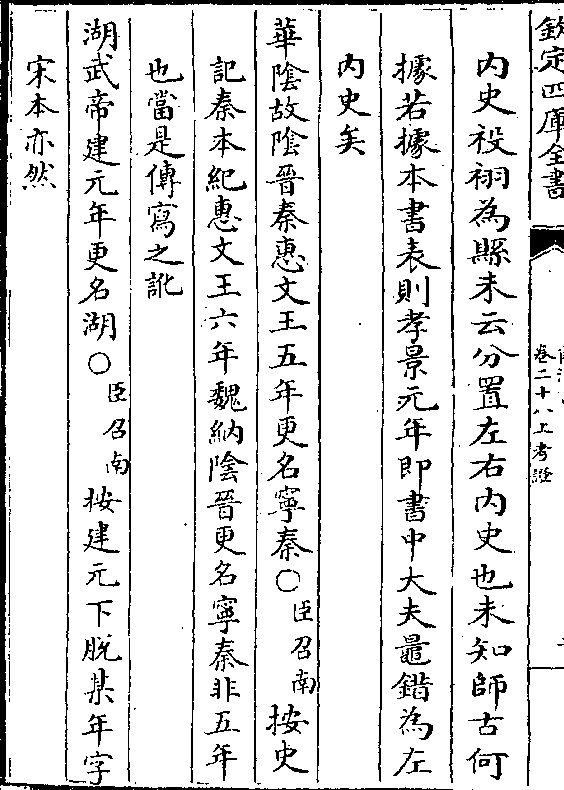 欽定四庫全書
卷二十八上考證
內史祋祤為縣未云分置左右內史也未知師古何
據若據本書表則孝景元年即書中大夫鼂錯為左
內史矣
華陰故陰晉秦惠文王五年更名寧秦○臣召南按史
記秦本紀惠文王六年魏納陰晉更名寧秦非五年
也當是傳寫之訛
湖武帝建元年更名湖○臣召南按建元下脫某年字
宋本亦然